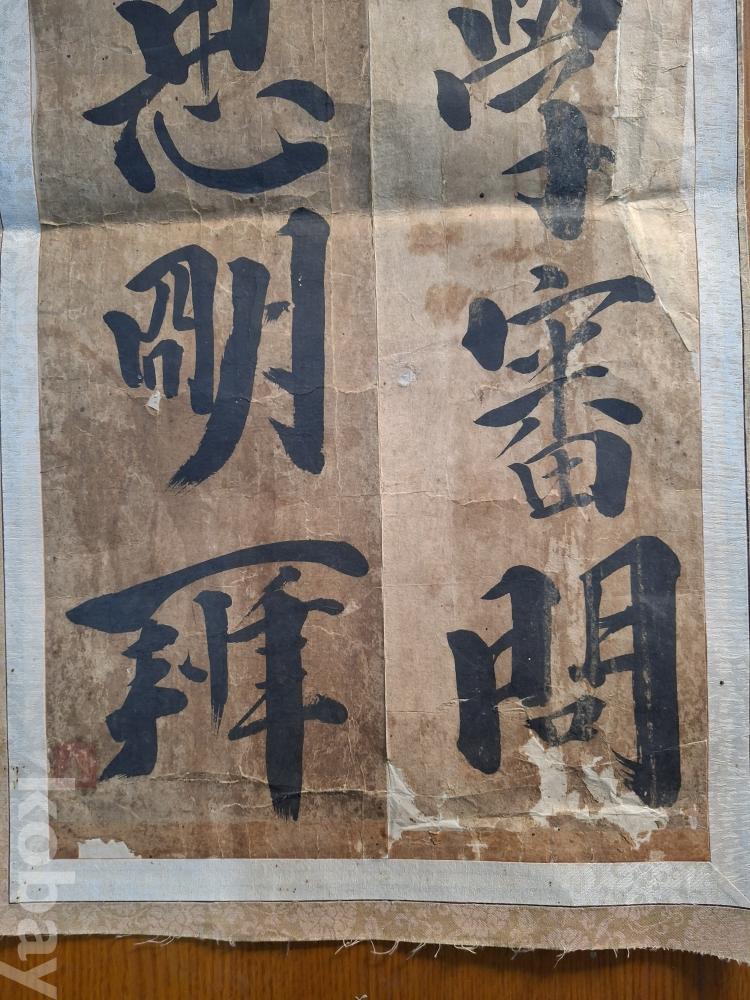 學審問
思明辨
kobay